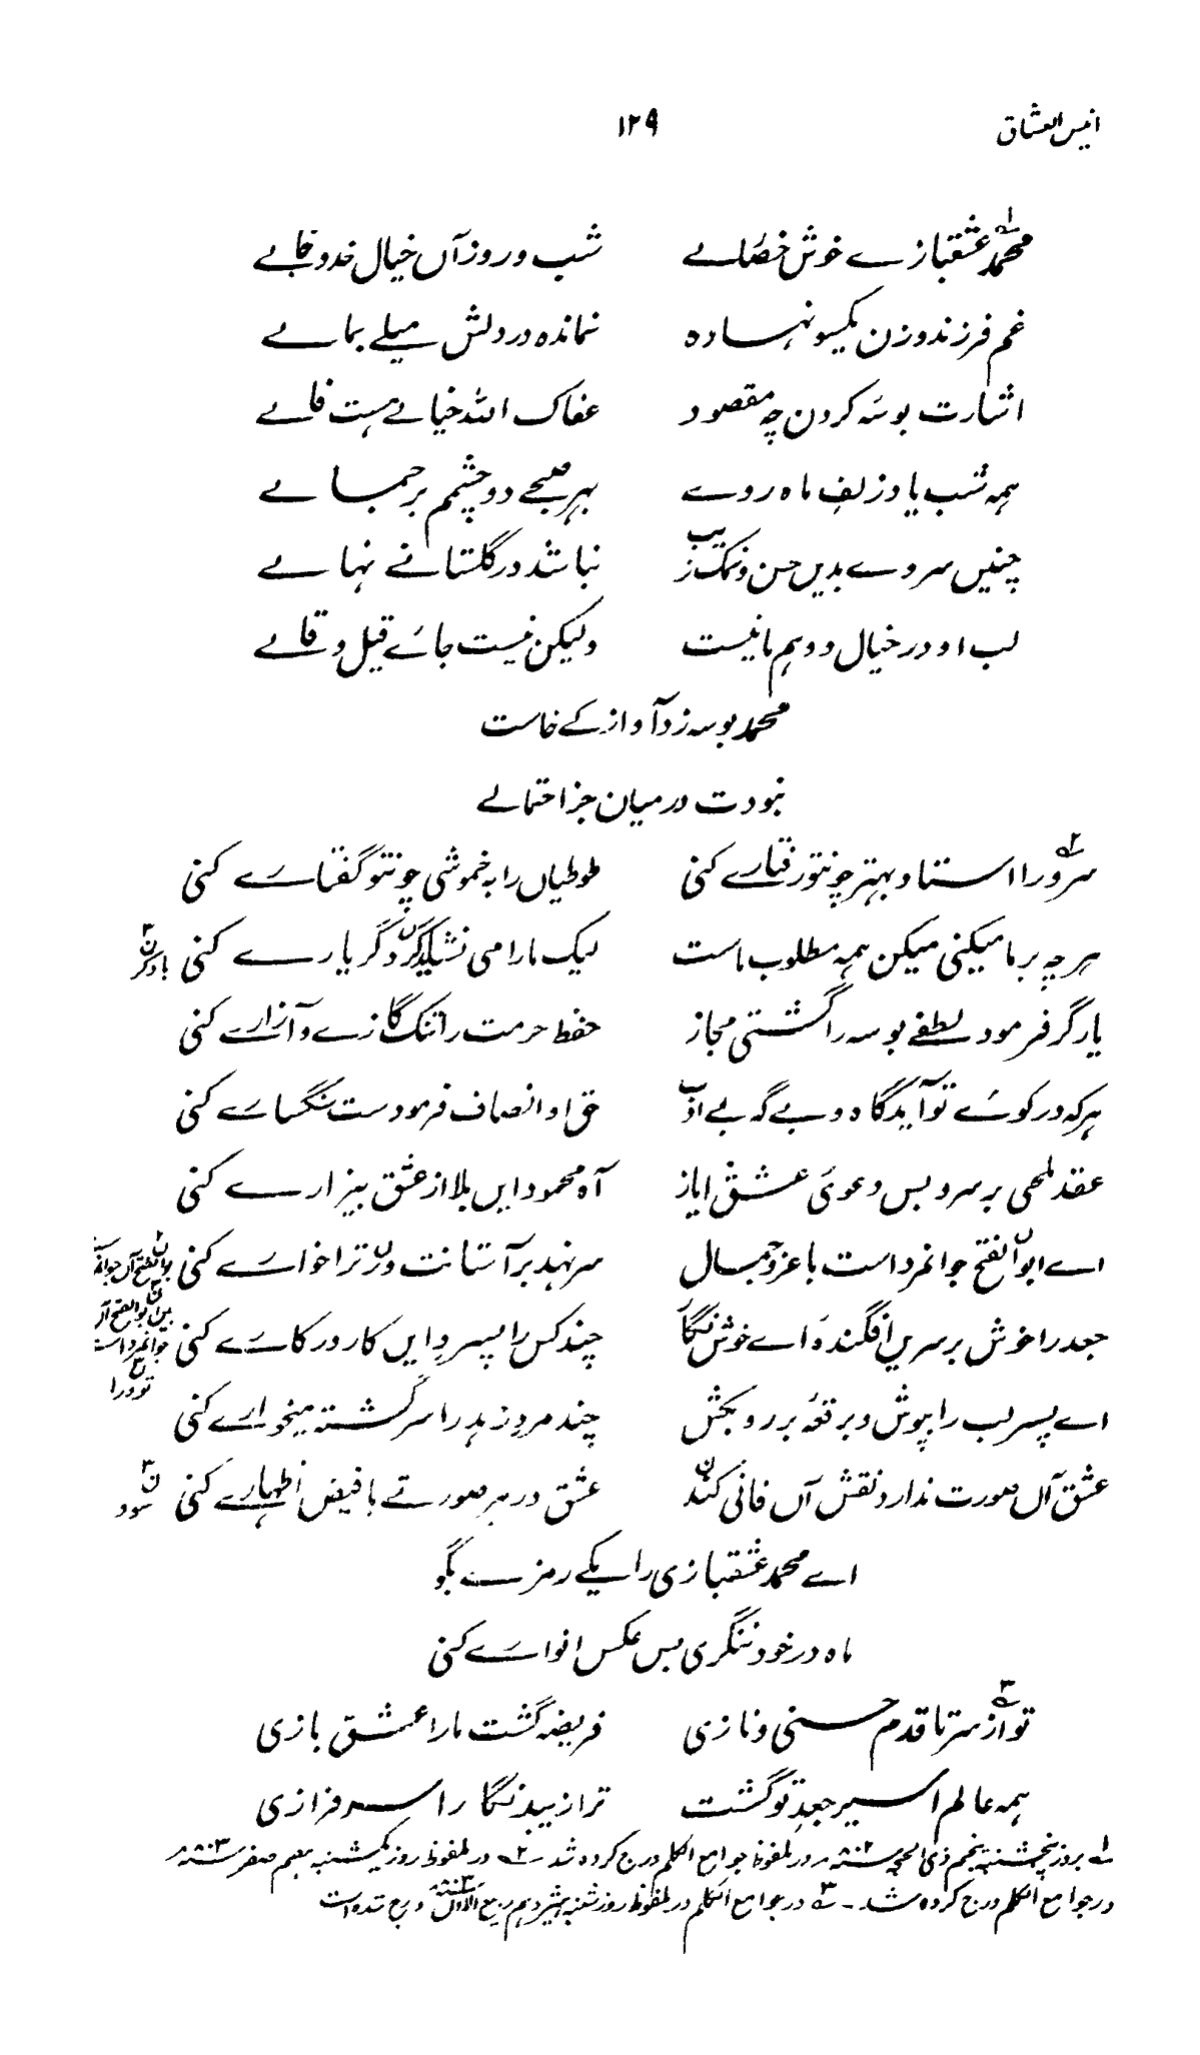 انیس العشاق ۱۲۹
محمدؐ عشقبازے خوش خصالے شب و روز آں خیال خد و خالے
غم فرزند و زن یکسو نہادہ نماندہ در دلش میلے بمالے
اشارت بوسہ کردن چہ مقصود عفاک اللہ خیالے ہست فالے
ہمہ شب یاد زلف ماہ روے بہر صبحے دو چشمم بر جمالے
چنیں سروے بدیں حسن و نمک زیب نباشد در گلستانے نہالے
لب او در خیال و وہم ما نیست ولیکن نیست جائے قیل و قالے
محمد بوسہ زد آواز کے خاست
نبودت درمیان جز احتمالے
سرو را استاد بہتر چو تو رفتارے کنی طوطیاں را بہ خموشی چو تو گفتارے کنی
ہرچہ بر ما میکنی میکن ہمہ مطلوب ماست لیک ما را می نشاید کردگر یارے کنی
یار گر فرمود لطفے بوسہ را گشتی مجاز حفظ حرمت را تنک گازے و آزارے کنی
ہر کہ در کوئے تو آید گاہ و بے گہ بے ادب حق او انصاف فرمودست سنگسارے کنی
عقد لمحی بر سر و بس دعوئ عشق ایاز آہ محمود ایں بلا از عشق بیزارے کنی
اے ابو الفتح جوانمرد است با عز و جمال سر نہد بر آستانت ور ترا خوارے کنی
جعد را خوش بر سرین افگندہ اے خوش نگار چند کس را پسرو ایں کار در کارے کنی
اے پسر لب را بپوش و برقعہ بر رو بکش چند مرد زہد را سرگشتہ میخوارے کنی
عشق آں صورت ندارد نقش آں فانی کند عشق در ہر صورتے با فیض اظہارے کنی
ن سود
اے محمد عشقبازی را یکے رمزے بگو
ماہ در خود ننگری بس عکس انوارے کنی
تو از سر تا قدم حسنی و نازی فریضہ گشت ما را عشق بازی
ہمہ عالم اسیر جعد تو گشت ترا زیبد نگارا سرفرازی
۱؎ بروز پنجشنبہ پنجم ذی الحجہ سنہ ۸۰۲ در ملفوظ جوامع الکلم درج کردہ شد ۲؎ در ملفوظ روز یکشنبہ ہفتم صفر سنہ ۸۰۳
در جوامع الکلم درج کردہ شد۔ ۳؎ در جوامع الکلم در ملفوظ روز شنبہ ہیژدہم ربیع الاول ۸۰۳ درج شدہ است